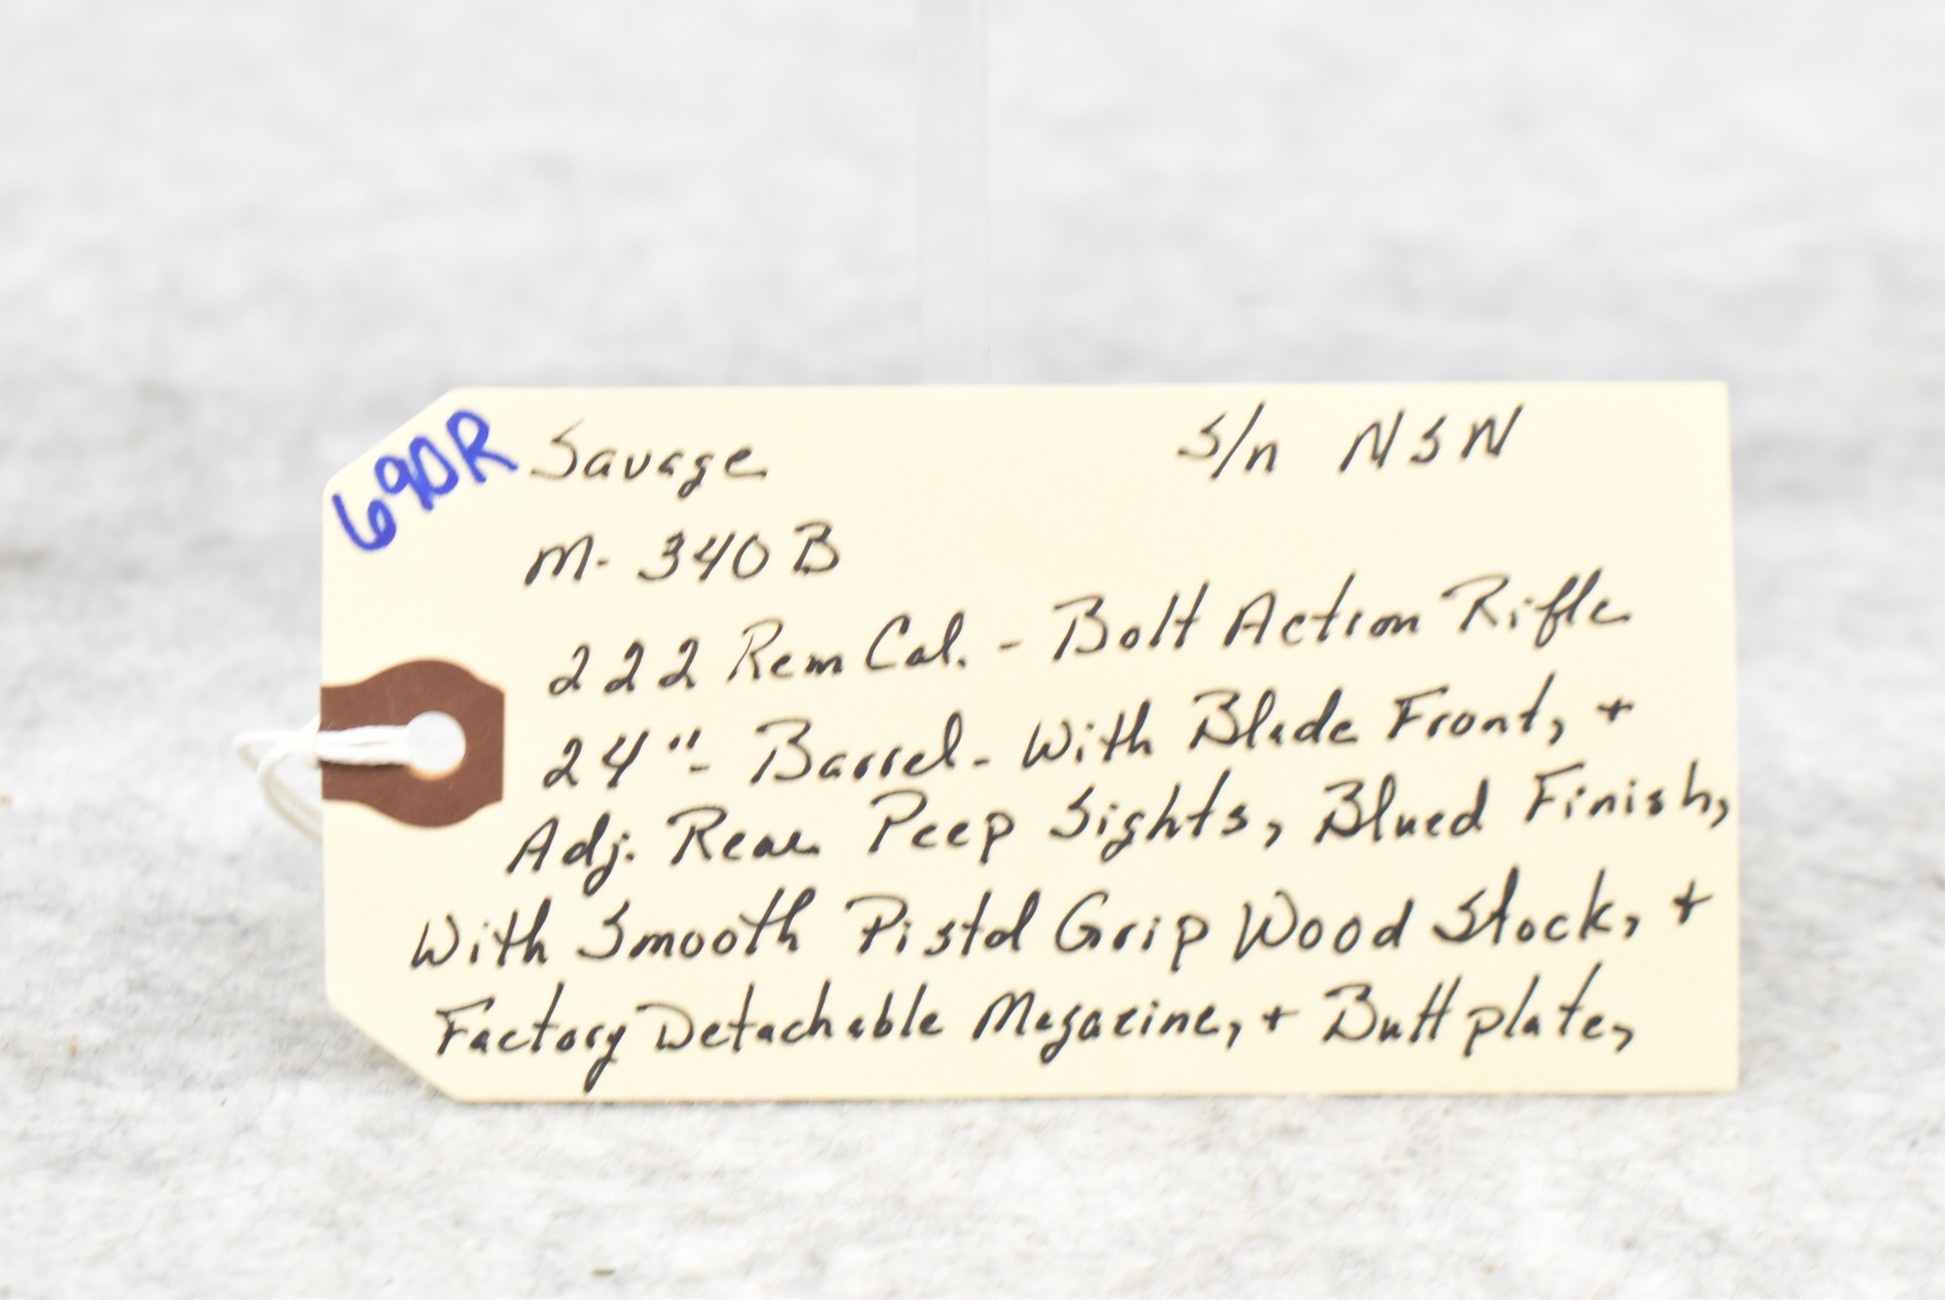 69DR
Savage S/n NSN
M- 340B
222 Rem Cal. - Bolt Action Rifle
24"- Barrel - With Blade Front, +
Adj. Rear Peep Sights, Blued Finish,
With Smooth Pistol Grip Wood Stock, +
Factory Detachable Magazine, + Buttplate,